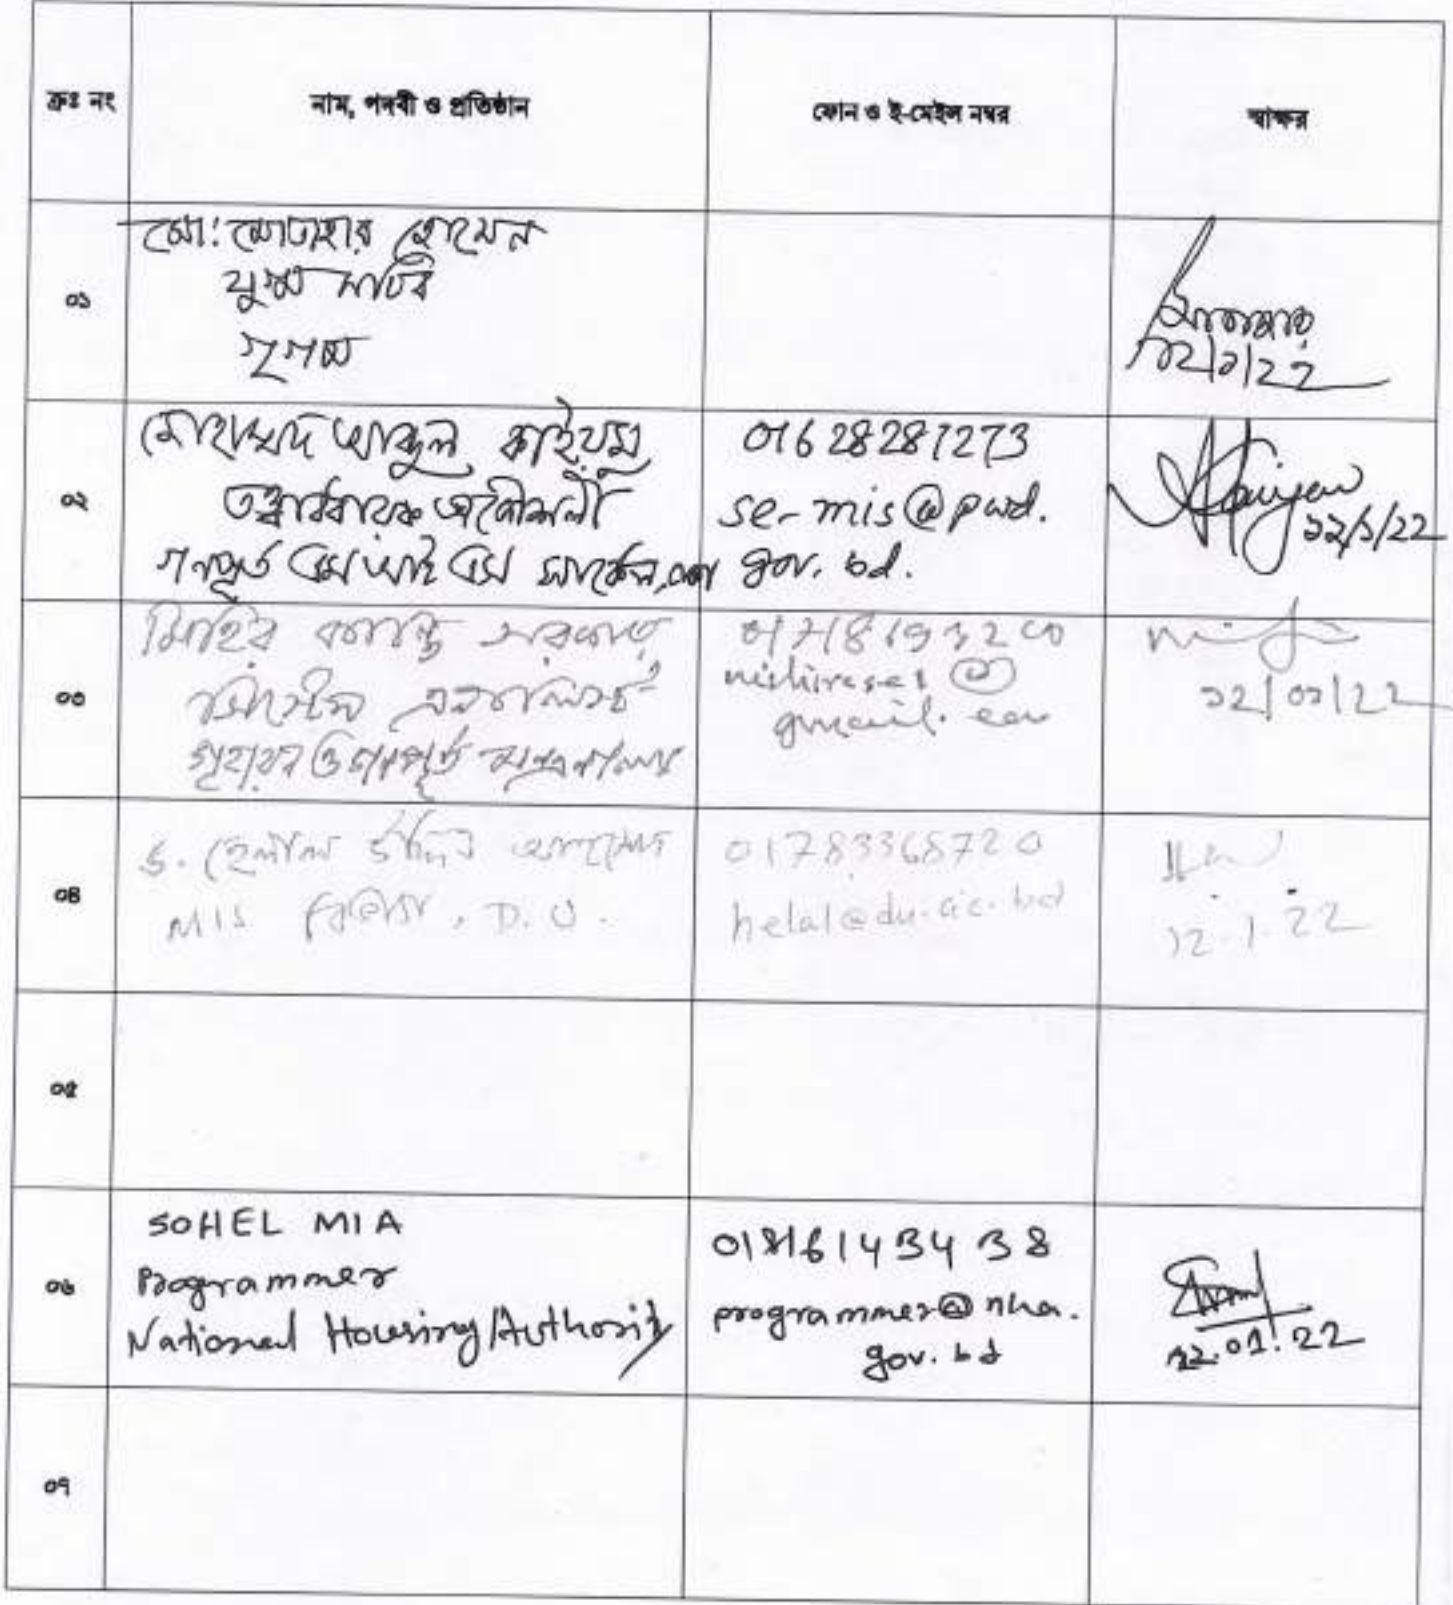 ক্রঃ নং নাম, পদবী ও প্রতিষ্ঠান ফোন ও ই-মেইল নম্বর স্বাক্ষর
০১
মো: মোতাহার হোসেন
যুগ্ম সচিব
গৃগম
১২/১/২২
০২
মোহাম্মদ আব্দুল কাইয়ুম
তত্ত্বাবধায়ক প্রকৌশলী
গণপূর্ত এম আই এস সার্কেল, ঢাকা
01628287273
se-mis@pwd.
gov.bd.
১২/১/22
০৩
মিহির কান্তি সরকার
সিস্টেম এনালিস্ট
গৃহায়ন ও গণপূর্ত মন্ত্রণালয়
gmail.com
১২/০১/২২
০৪
ড. হেলাল উদ্দিন আহমেদ
MIS বিভাগ, D.U.
01783365720
helal@du.ac.bd
12.1.22
০৫
০৬
SOHEL MIA
Programmer
National Housing Authority
01816143438
programmer@nha.
gov.bd
12.01.22
০৭